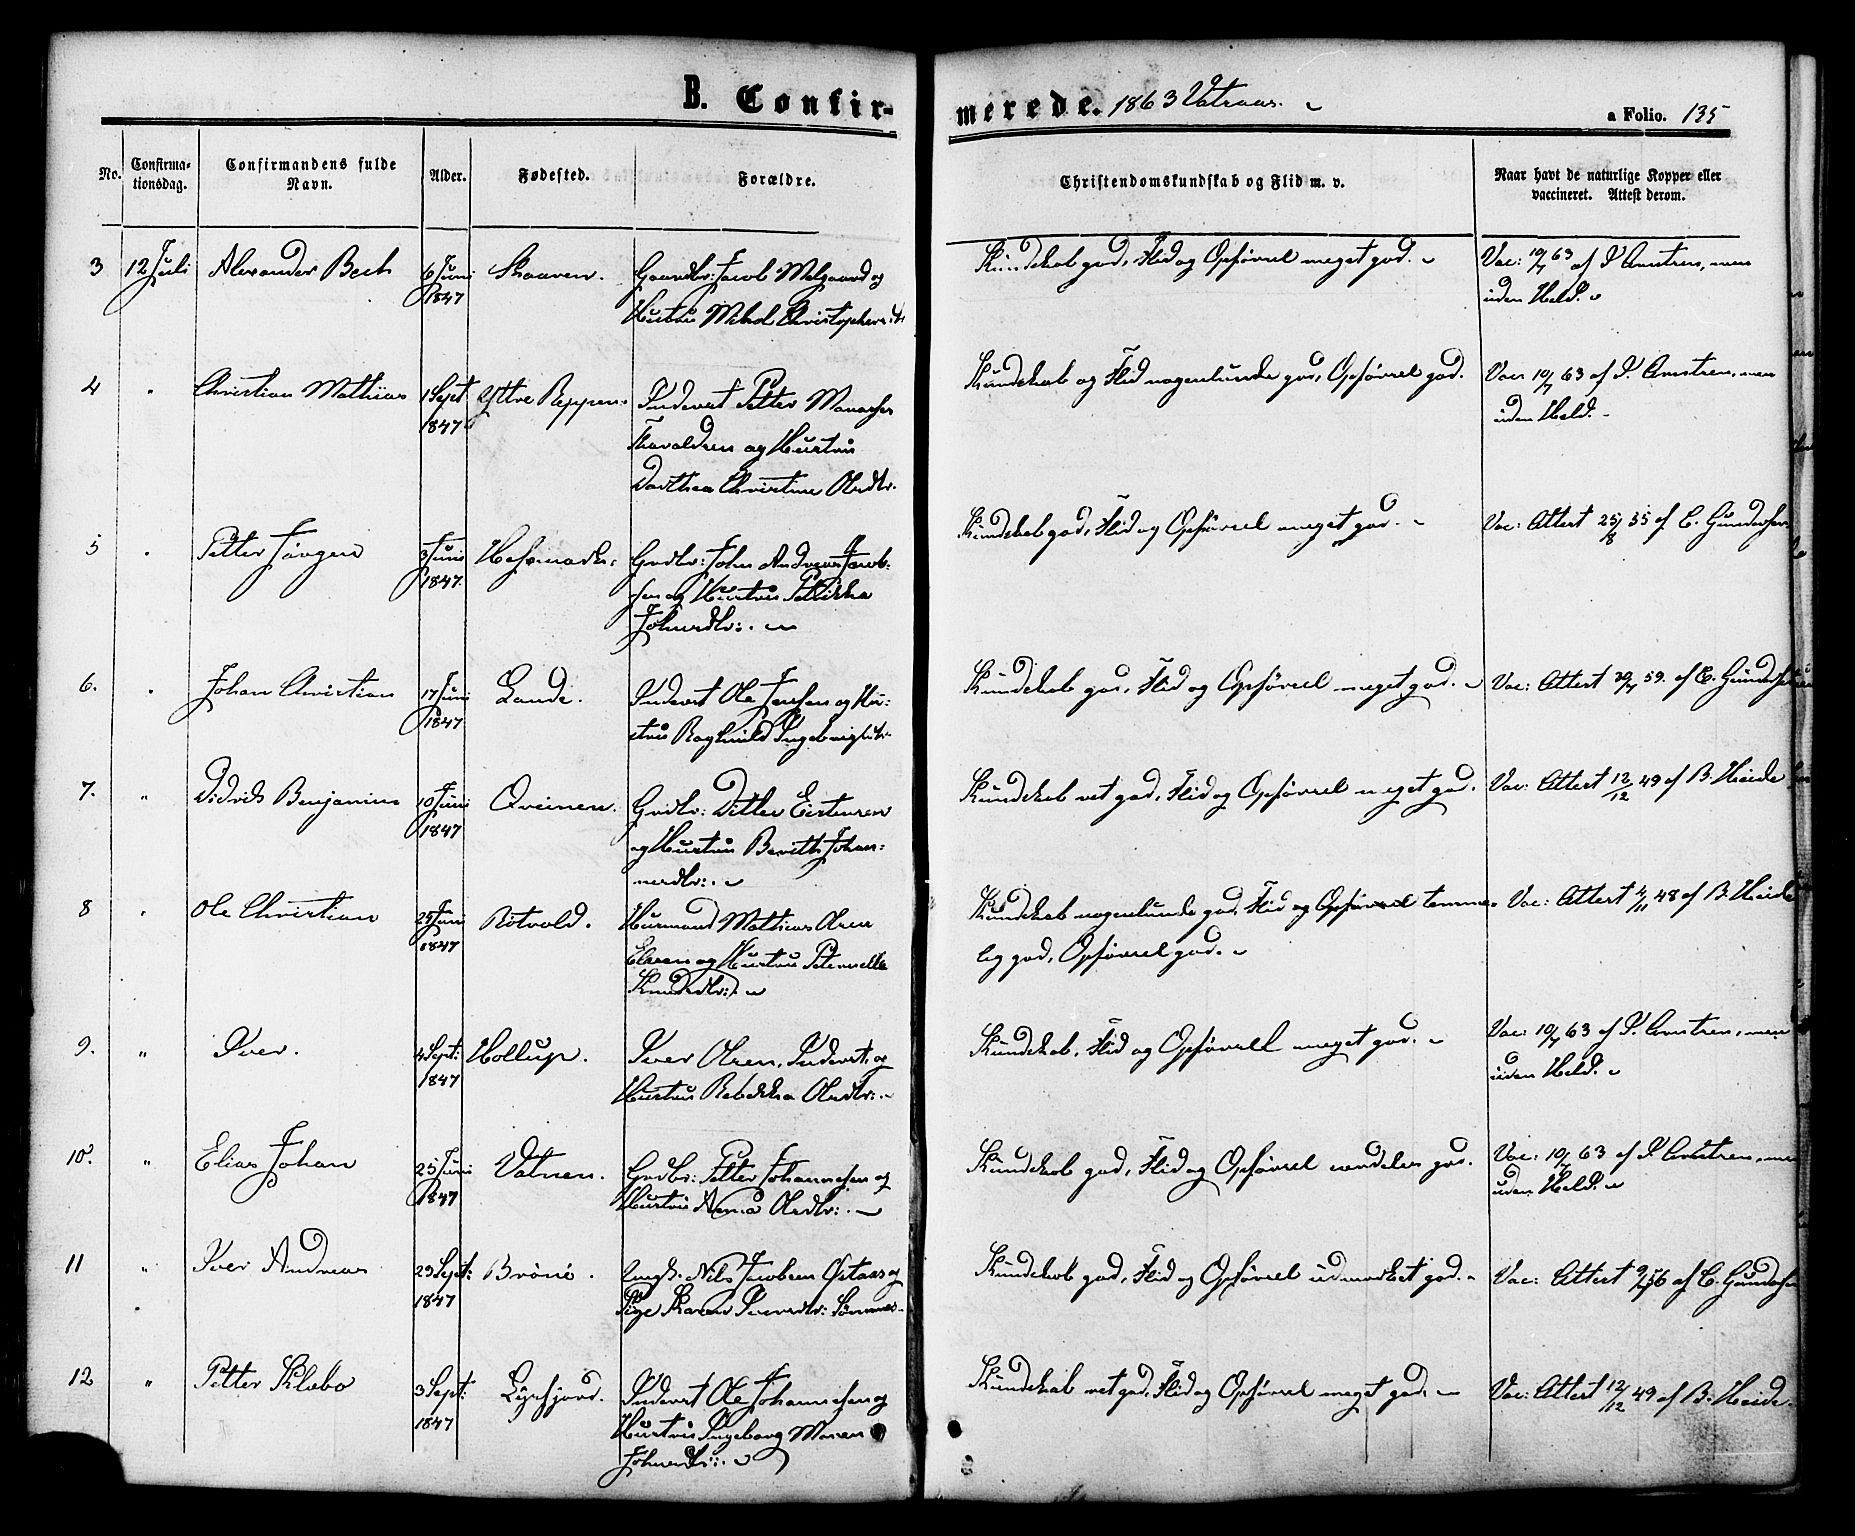 B. Confir-
merede. 1863 Vatraas.
a Folio. 135
No.
Confirma-
tionsdag.
Confirmandens fulde
Navn.
Alder.
Fødested.
Forældre.
Christendomskundskab og Flid m. v.
Naar havt de naturlige Kopper eller
vaccineret. Attest derom.
3 12 Juli Alexander Bech 6 Juni Skaaren. Gaardbr: Jacob Melgaard og
1847 Hustru Christophers:dt:
Kundskab god, Flid og Opførsel meget god.
Vac: 10/7 63 af Arntsen, men
uden Held.
4 " Christian Mathias 1 Sept Yttre Reppen. Inderst Petter
1847 Tharaldsen og Hustru
Dorthea Christine Olsdtr.
Kundskab og Flid nogenlunde god, Opførsel god.
Vac: 10/7 63 af Arntsen, men
uden Held.
5 " Petter Jørgen 3 Juni Grdbr: John Andreas Jacob-
1847. sen og Hustru
Johnsdtr:.
Kundskab god, Flid og Opførsel meget god.
Vac: Attest 25/8 55 af C. Gundersen
6. " Johan Christian 17 Juni Lande. Inderst Ole Jensen og Hu-
1847 stru Raghnild
Kundskab god, Flid og Opførsel meget god.
Vac: Attest 59. af C. Gundersen
7. " Didrik Benjamin 10 Juni Qveinen. Grdbr: Ditlev Eistensen
1847 og Hustru Berith Johan-
nesdtr:.
Kundskab ret god, Flid og Opførsel meget god.
Vac: Attest 12/12 49 af B. Heide
8 " Ole Christian 25 Juni Rotvold. Husmand Mathias Olsen
1847 og Hustru Peternelle
Knudsdtr:.
Kundskab nogenlunde god, Flid og Opførsel temme-
lig god, Opførsel god.
Vac: Attest 4/11 48 af B. Heide
9. " Iver. 4 Sept: Hollup. Iver Olsen, Inderst: og
1847 Hustru Rebekka Olsdtr:.
Kundskab, Flid og Opførsel meget god.
Vac: 10/7 63 af Arntsen, men
uden Held.
10. " Elias Johan 25 Juni Vatnen. Grdbr: Petter Johannesen og
1847 Hustru Anna Olsdtr:.
Kundskab god, Flid og Opførsel særdeles god.
Vac: 10/7 63 af Arntsen, men
uden Held.
11 " Iver Andreas 29 Sept: Ungk. Nils Jacobsen og
1847 Pige Karen Iversdtr:
Kundskab god, Flid og Opførsel udmærket god.
Vac: Attest 56 af C. Gundersen
12 " Petter Klæbo 3 Sept: Lysfjord. Inderst Ole Johannesen og
1847 Hustru Ingeborg Maren
Johnsdtr:.
Kundskab ret god, Flid og Opførsel meget god.
Vac: Attest 12/12 49 af B. Heide.